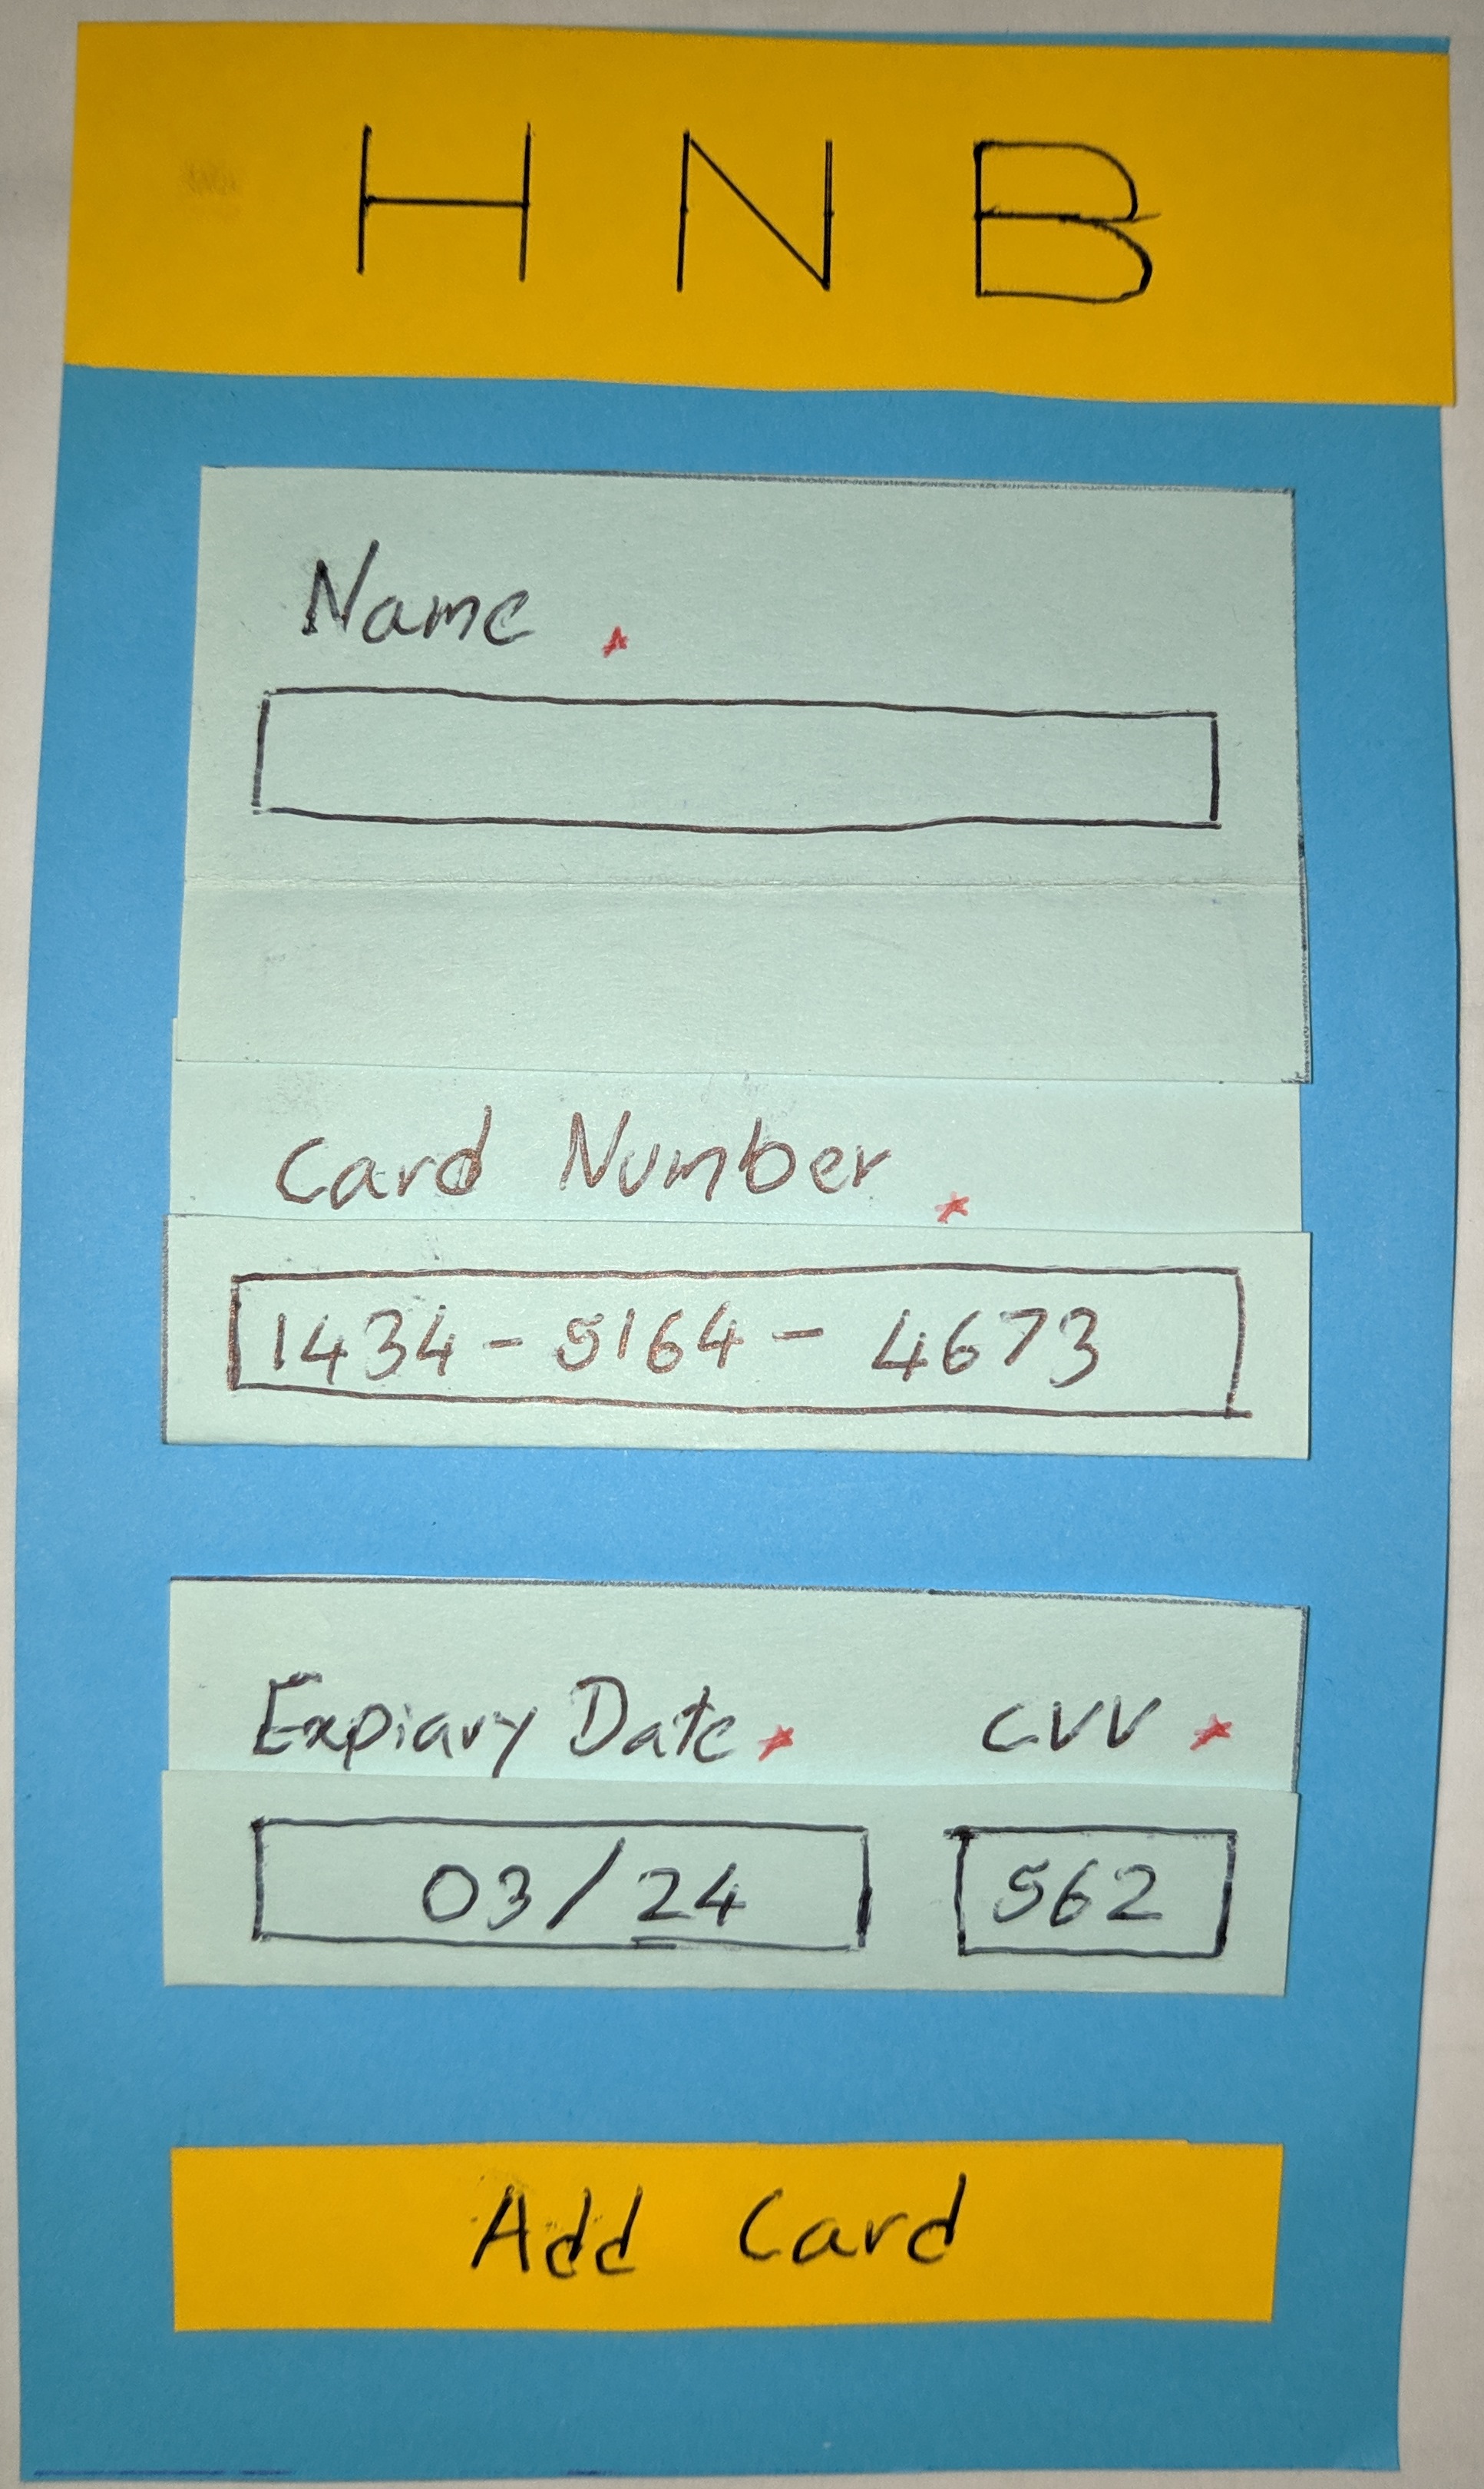 H N B
Name *
Card Number *
1434 - 5164 - 4673
Expiary Date * CVV *
03/24 562
Add Card